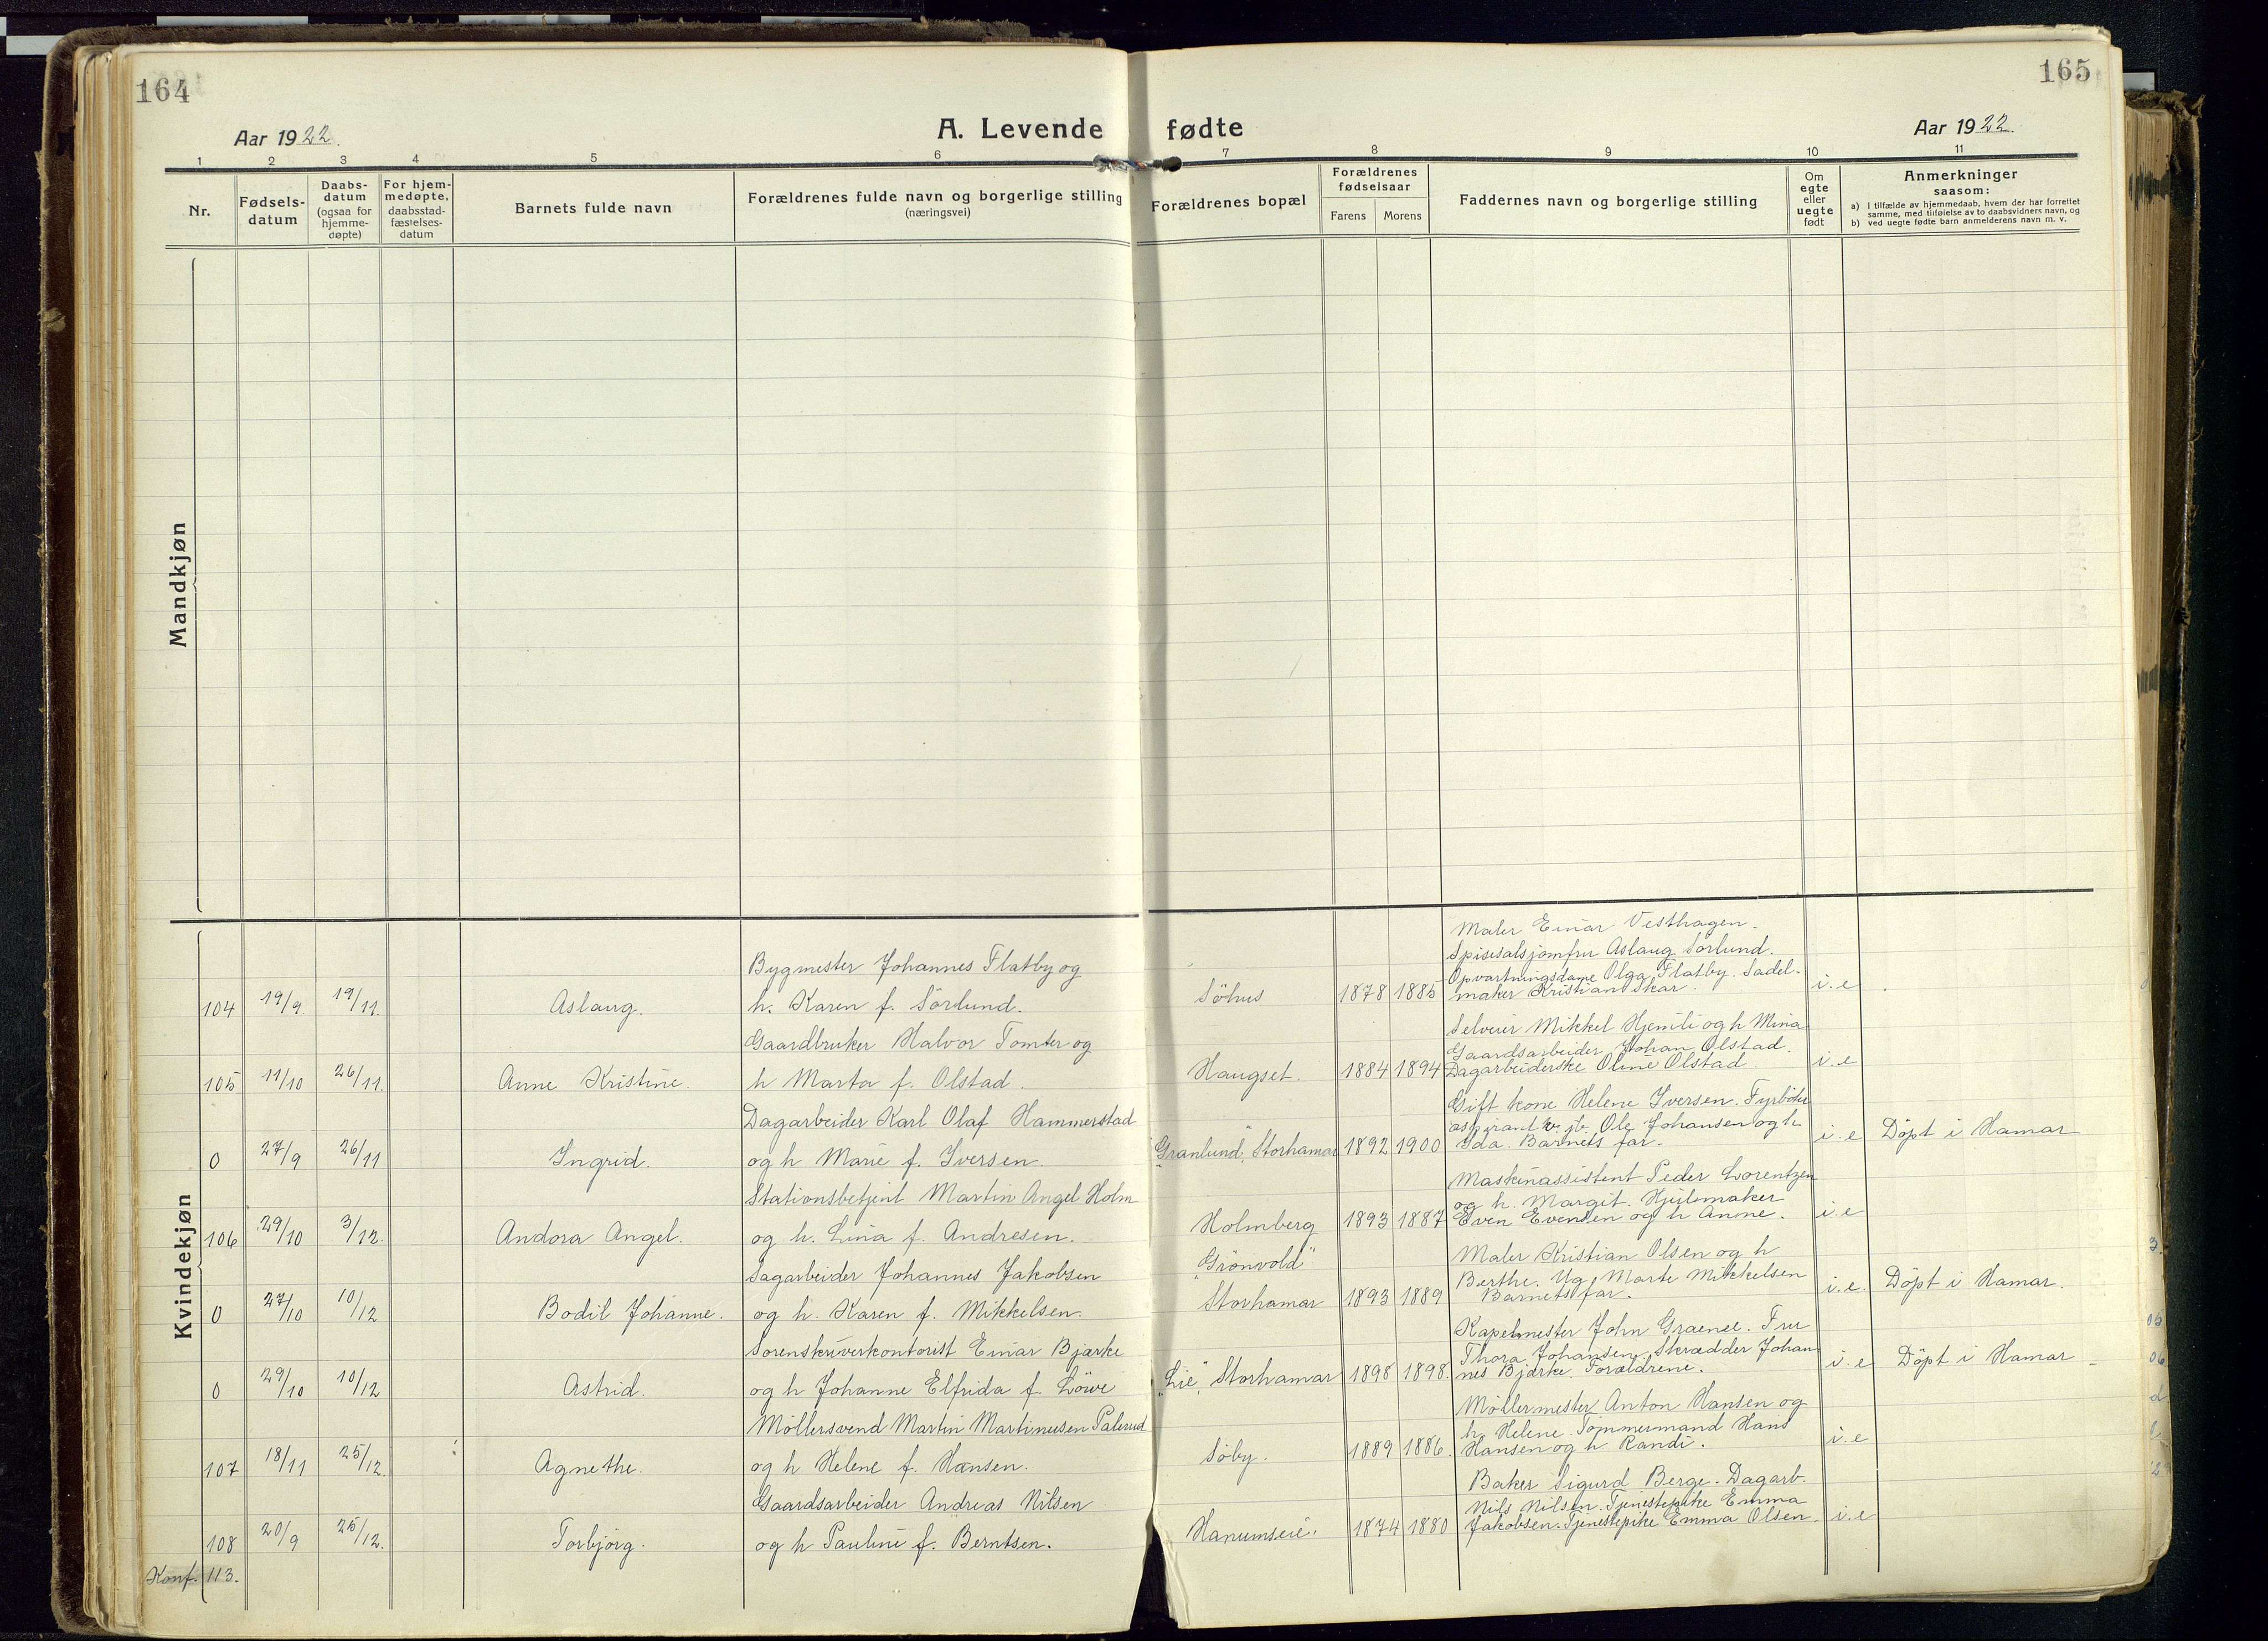 164
165
Aar 1922.
A. Levende fødte
Aar 1922.
1 2 3 4 5 6 7 8 9 10 11
Nr.
Fødsels-
datum
Daabs-
datum
(ogsaa for
hjemme-
døpte)
For hjem-
medøpte,
daabsstad-
fæstelses-
datum
Barnets fulde navn
Forældrenes fulde navn og borgerlige stilling
(næringsvei)
Forældrenes bopæl
Forældrenes
fødselsaar
Farens
Morens
Faddernes navn og borgerlige stilling
Om
egte
eller
uegte
født
Anmerkninger
saasom:
a) i tilfælde av hjemmedaab, hvem der har forrettet
samme, med tilføielse av to daabsvidners navn, og
b) ved uegte fødte barn anmelderens navn m. v.
Mandkjøn
Kvindekjøn
104 19/9 19/11. Aslaug.
Bygmester Johannes Flatby og
h. Karen f. Sörlund.
Söhus 1878 1885
Maler Einar Vesthagen.
Spisesalsjomfru Aslaug Sørlund.
Opvartningsdame Olga Flatby. Sadel-
maker Kristian Skar.
i. e
105 11/10 26/11. Anne Kristine.
Gaardbruker Halvor Tomter og
h Marta f. Olstad.
Haugset. 1884 1894
Selveier Mikkel Hjemli og h Mina
Gaardsarbeider Johan Olstad.
Dagarbeiderske Oline Olstad.
i. e
0 27/9 26/11 Ingrid.
Dagarbeider Karl Olaf Hammerstad
og h Marie f. Iversen
"Granlund", Storhamar 1892 1900
Gift kone Helene Iversen. Fyrböter
aspirant v. jb. Ole Johansen og h
Ida. Barnets far.
i. e Döpt i Hamar
106 29/10 3/12. Andora Angel.
Stationsbetjent Martin Angel Holm
og h. Lina f. Andresen.
Holmberg 1893 1887
Maskinassistent Peder Lorentzen
og h. Margit. Hjulmaker
Even Evensen og h Anne.
i. e
0 27/10 10/12 Bodil Johanne.
Sagarbeider Johannes Jakobsen
og h. Karen f. Mikkelsen.
"Grönvold"
Storhamar 1893 1889
Maler Kristian Olsen og h
Berthe. Ug. Marte Mikkelsen
Barnets far.
i. e. Döpt i Hamar.
0 29/10 10/12 Astrid.
Sorenskriverkontorist Einar Bjærke
og h Johanne Elfrida f. Löwe
"Lie", Storhamar 1898 1898.
Kapelmester John Graenee. Fru
Thora Johansen. Skrædder Johan
nes Bjærke. Forældrene.
i. e Döpt i Hamar
107 18/11 25/12. Agnethe.
Möllersvend Martin Martinusen Palerud
og h Helene f. Hansen.
Söby. 1889 1886.
Möllermester Anton Hansen og
h. Helene. Tömmermand Hans
Hansen og h Randi.
i. e
108 20/9 25/12. Torbjörg.
Gaardsarbeider Andreas Nilsen
og h Pauline f. Berntsen.
Hanumseie. 1874 1880
Baker Sigurd Berge. Dagarb.
Nils Nilsen. Tjenestepike Emma
Jakobsen. Tjenestepike Emma Olsen.
i. e
Konf. 113.